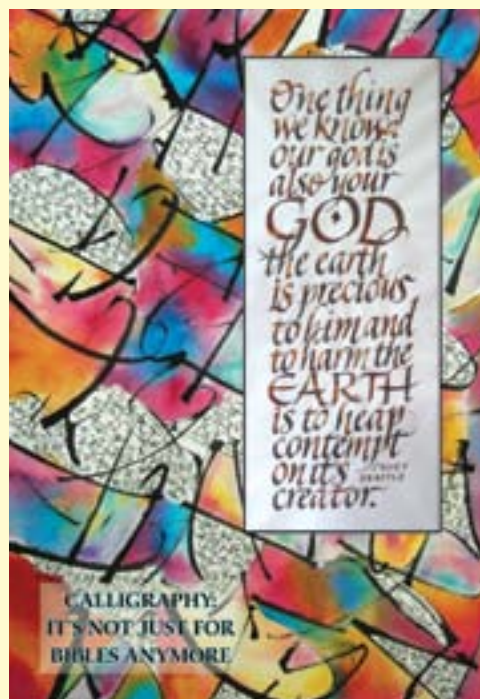 One thing
we know:
our god is
also your
GOD.
the earth
is precious
to him and
to harm the
EARTH
is to heap
contempt
on its
CHIEF
SEATTLE
creator.
CALLIGRAPHY:
IT'S NOT JUST FOR
BIBLES ANYMORE